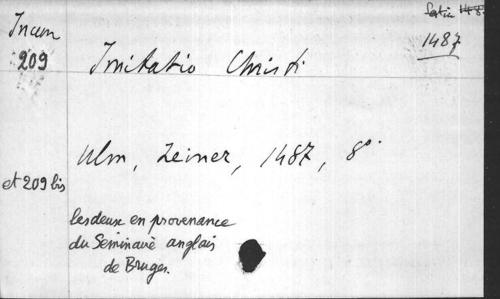 1487
Incun
209
Imitatio Christi
Ulm, Zeiner, 1487, 8°.
et 209 bis
les deux en provenance
du Séminaire anglais
de Bruges.